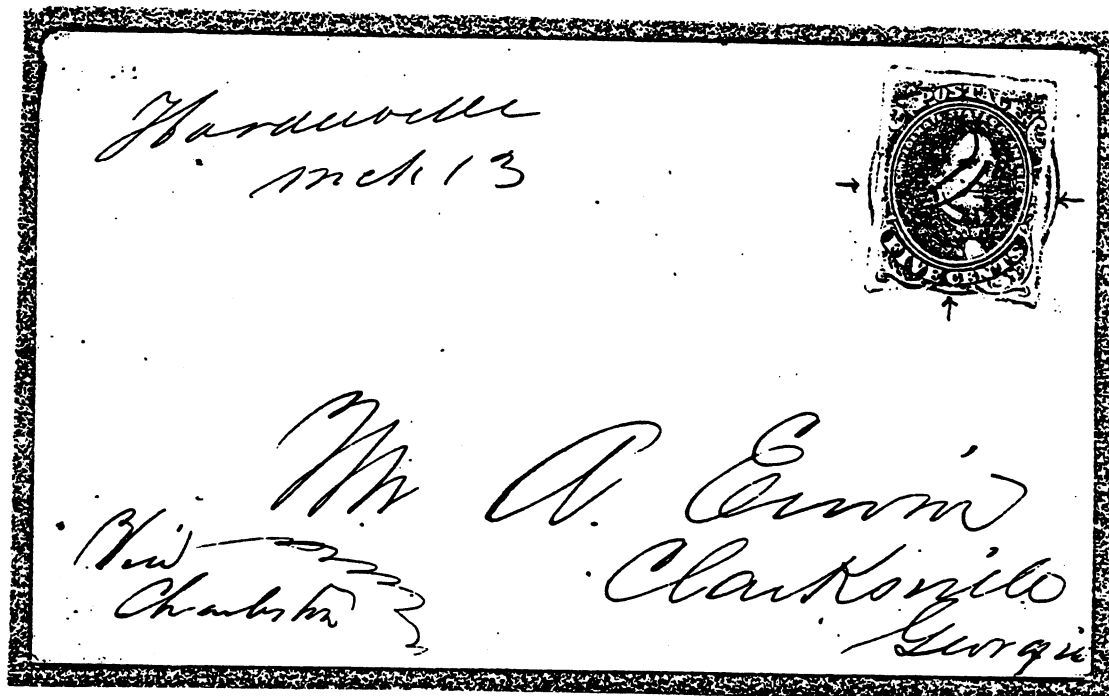 Hardeeville
mch 13
POSTAGE
FIVE CENTS
Mr A. Erwin
Clarksville
Georgia
Via
Charleston